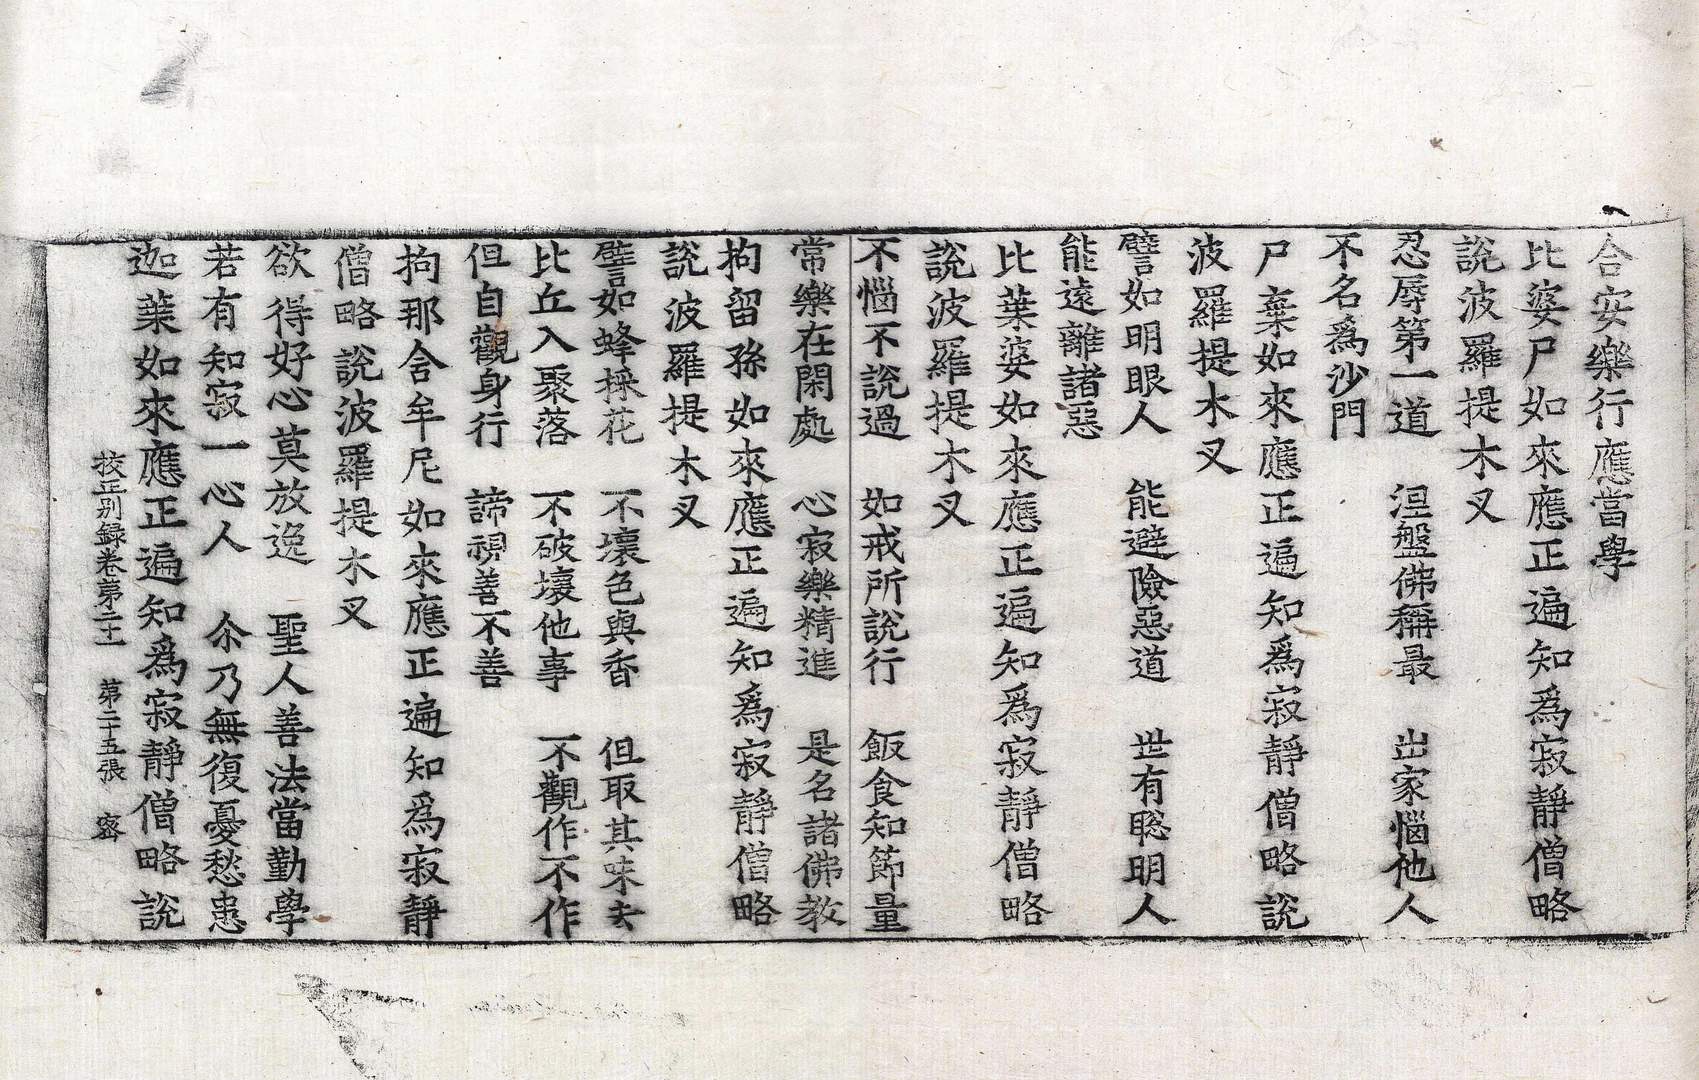 合安樂行應當學
比婆尸如來應正遍知爲寂靜僧略
說波羅提木叉
忍辱第一道　涅盤佛稱最　出家惱他人
不名爲沙門
尸棄如來應正遍知爲寂靜僧略說
波羅提木叉
譬如明眼人　能避險惡道　世有聡明人
能遠離諸惡
比葉婆如來應正遍知爲寂靜僧略
說波羅提木叉
不惱不說過　如戒所說行　飯食知節量
常樂在閑處　心寂樂精進　是名諸佛教
拘留孫如來應正遍知爲寂靜僧略
說波羅提木叉
譬如蜂採花　不壞色與香　但取其味去
比丘入聚落　不破壞他事　不觀作不作
但自觀身行　諦視善不善
拘那含牟尼如來應正遍知爲寂靜
僧略說波羅提木叉
欲得好心莫放逸　聖人善法當勤學
若有知寂一心人　尒乃無復憂愁患
迦葉如來應正遍知爲寂靜僧略說
校正別録卷第二十　第二十五張　密